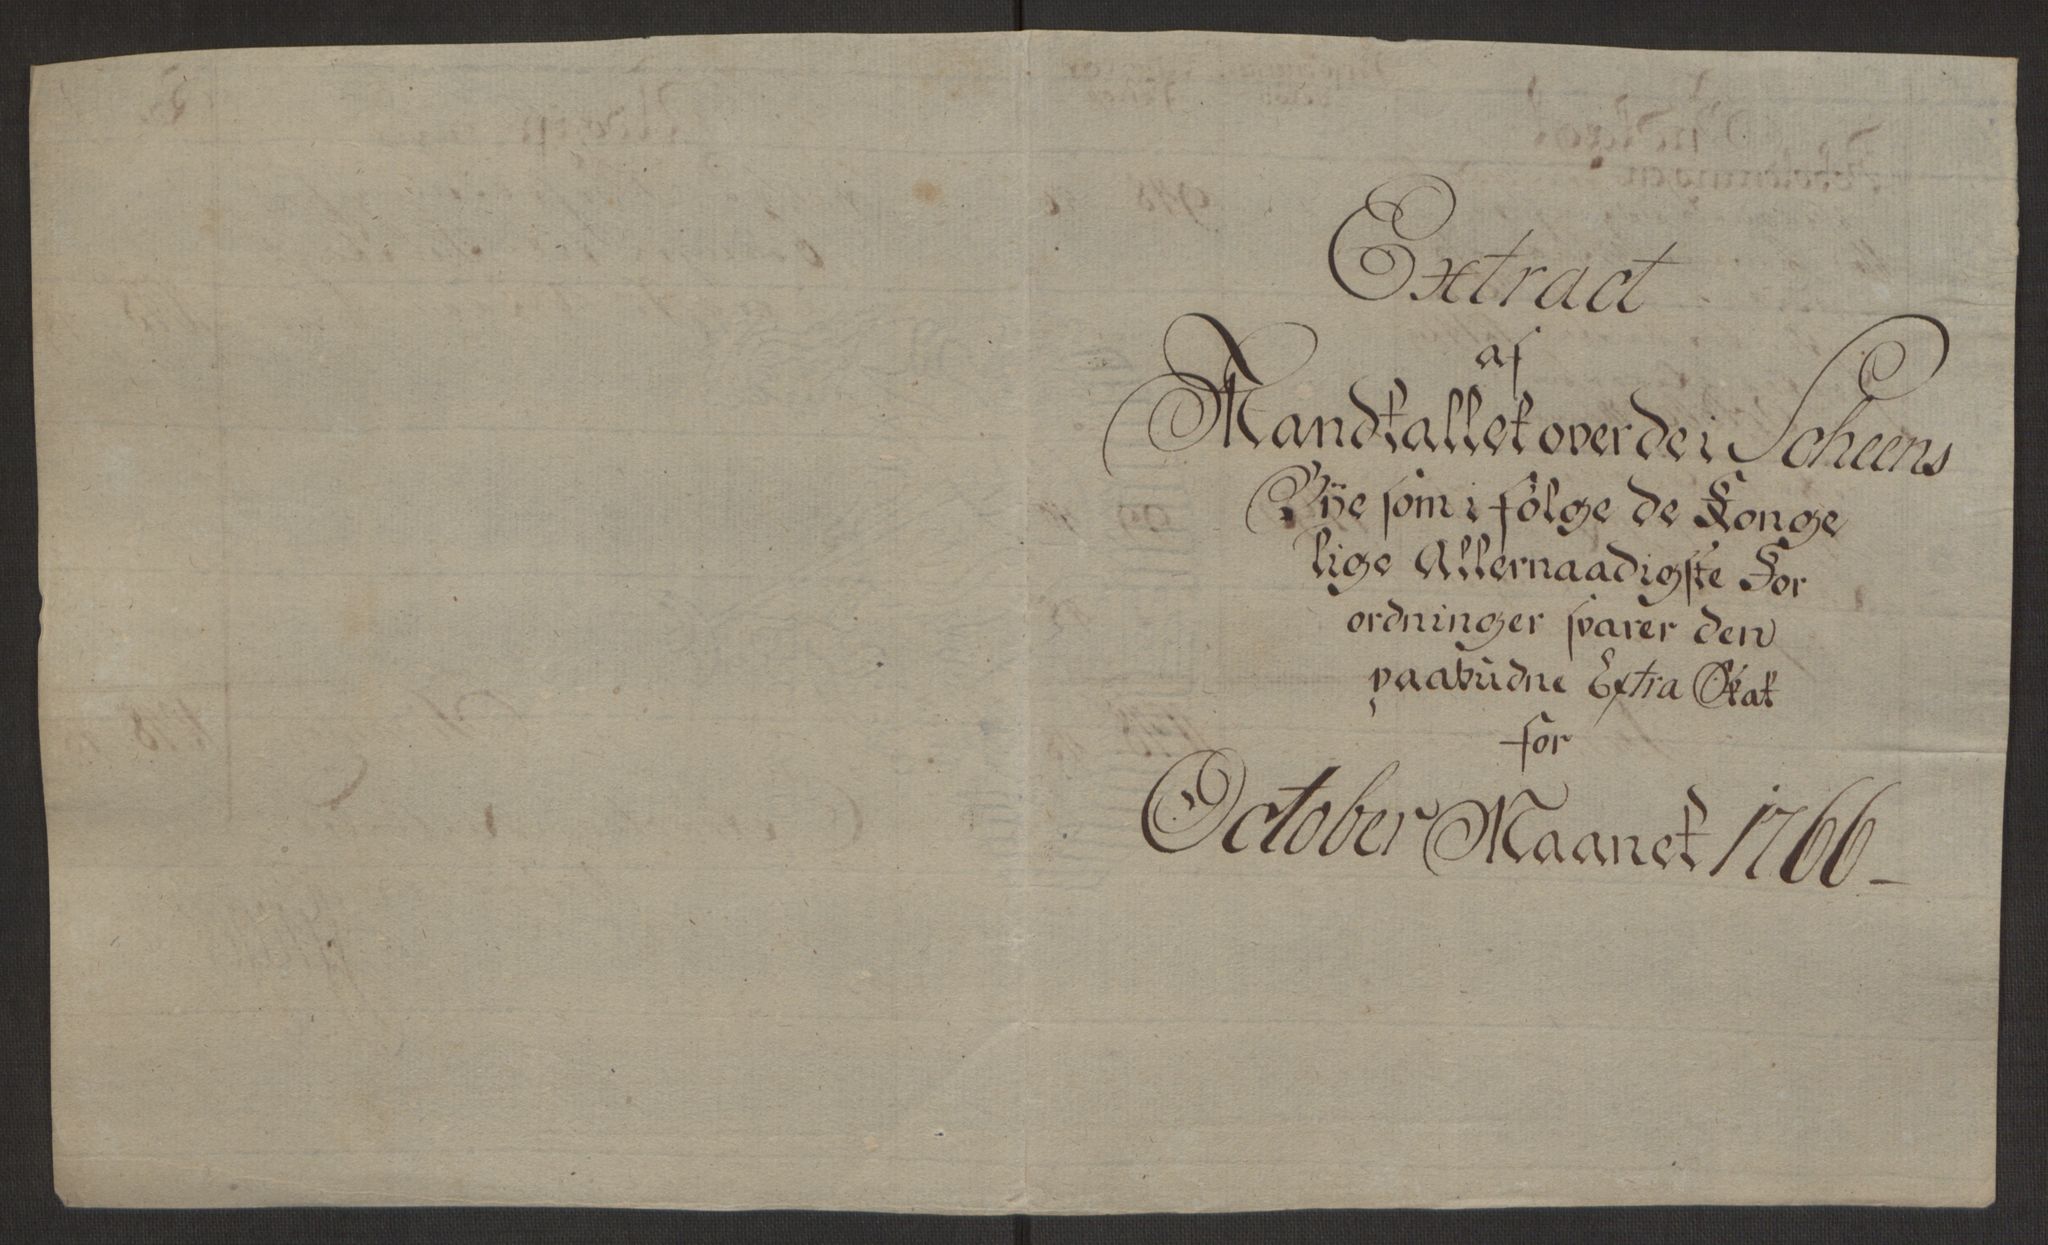 Extract
af
Mandtallet over de i Scheens
Bÿe som i fölge de Konge
lige Allernaadigste For
ordninger svarer den
paabudne Extra Skat
for
October Maanet 1766